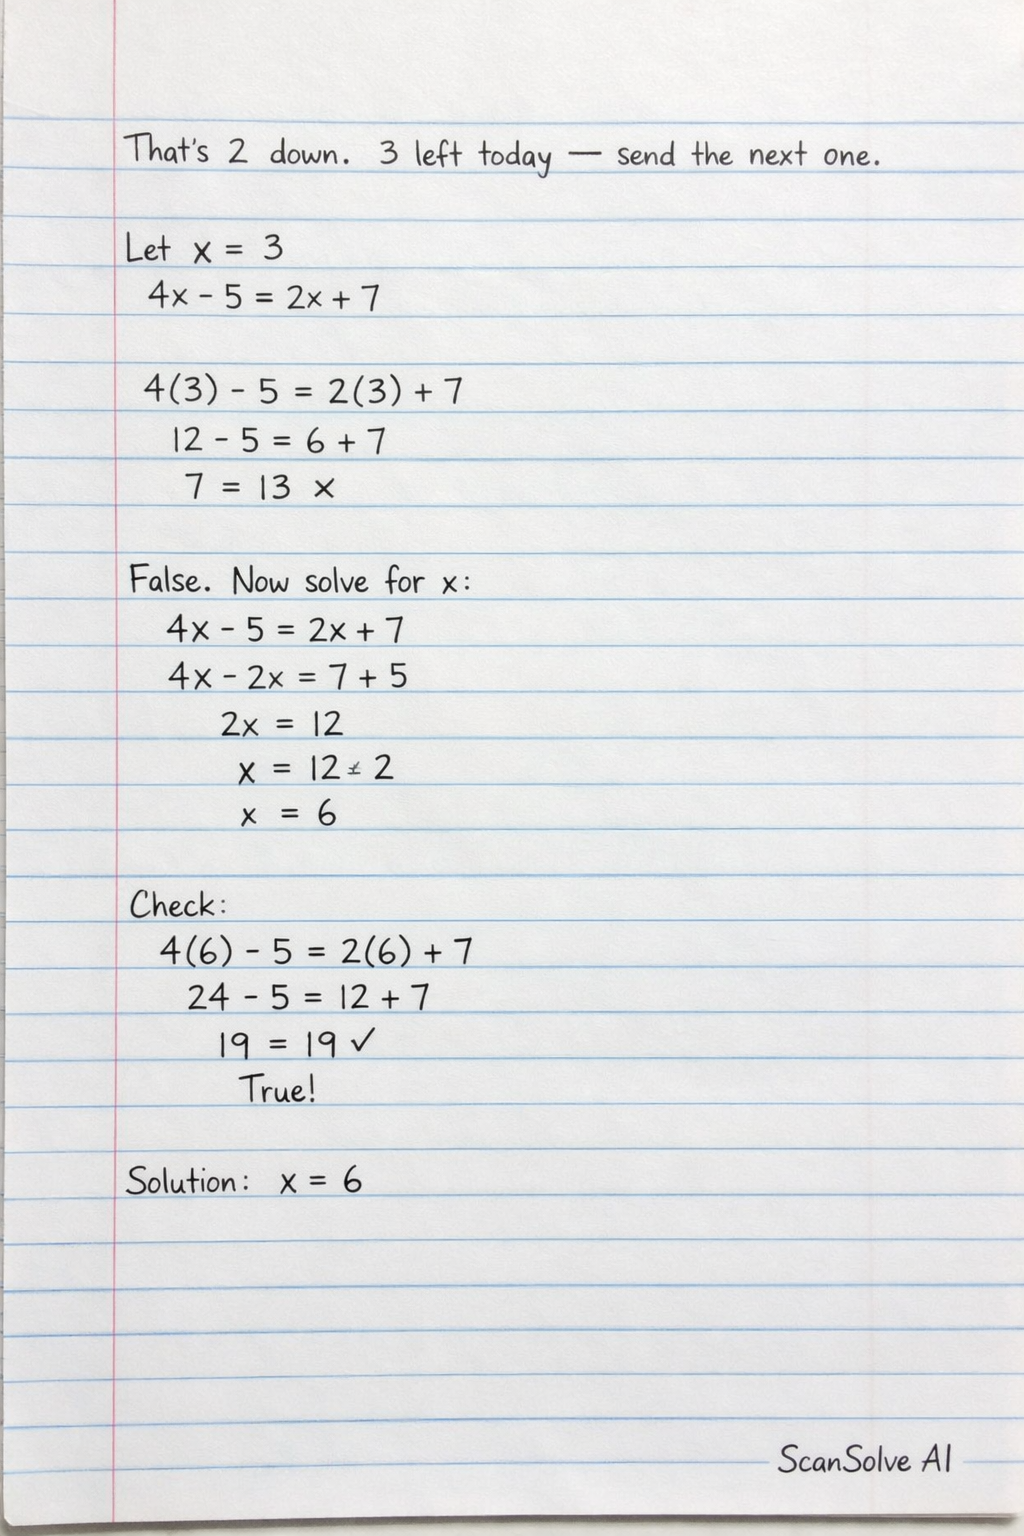 That's 2 down. 3 left today — send the next one.
Let x = 3
4x - 5 = 2x + 7
4(3) - 5 = 2(3) + 7
12 - 5 = 6 + 7
7 = 13 ×
False. Now solve for x:
4x - 5 = 2x + 7
4x - 2x = 7 + 5
2x = 12
x = 12 2
x = 6
Check:
4(6) - 5 = 2(6) + 7
24 - 5 = 12 + 7
19 = 19 ✓
True!
Solution: x = 6
ScanSolve AI